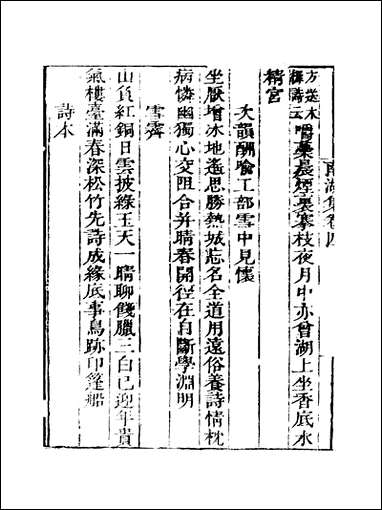 南湖集卷四
方送木
樨詩云
嚼蘂晨煙裏搴枝夜月中亦曾湖上坐香底水
精宮
次韻酬喻工部雪中見懷
坐厭增冰地遙思勝熱城忘名全道用遠俗養詩情枕
病憐幽獨心交阻合并晴春開徑在自斷學淵明
雪霽
山負紅銅日雲披綠玉天一晴聊餞臘三白已迎年貴
氣樓臺滿春深松竹先詩成緣底事鳥跡印篷船
詩本